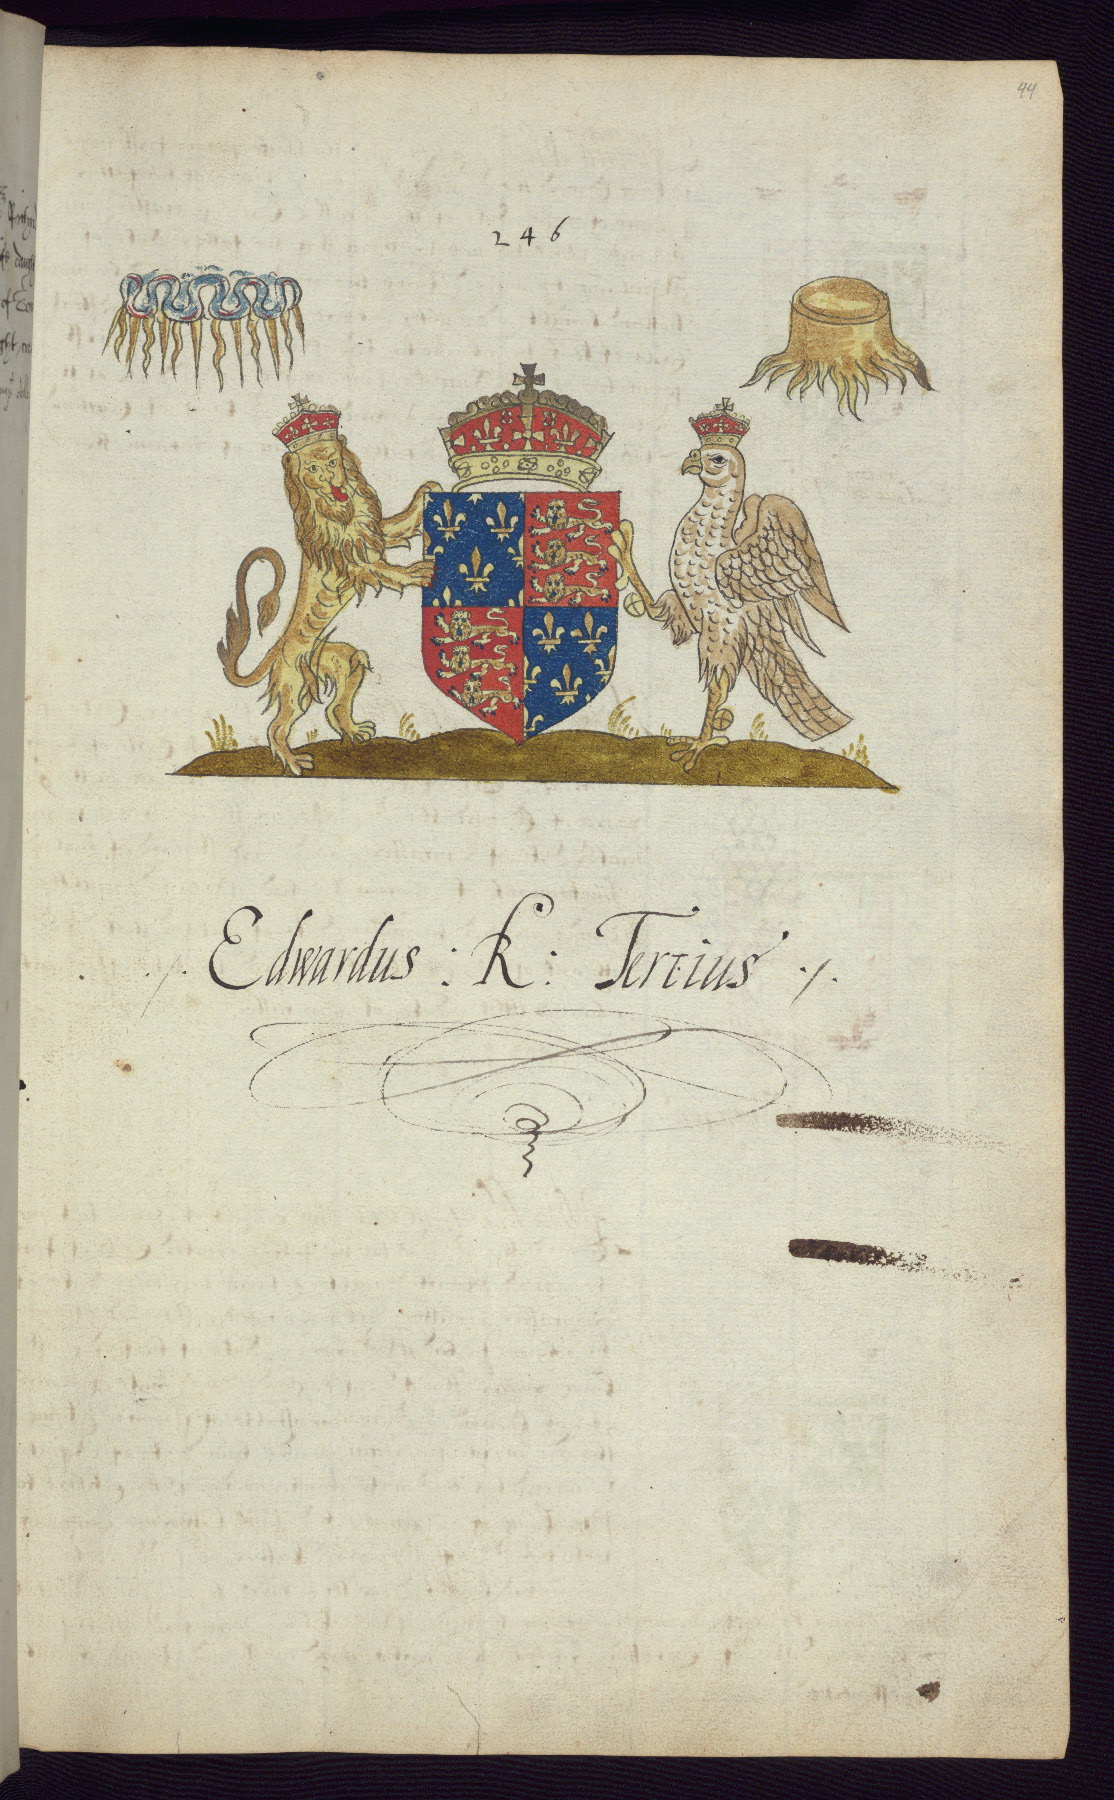 44
246
Edwardus : R : Tertius ·/·